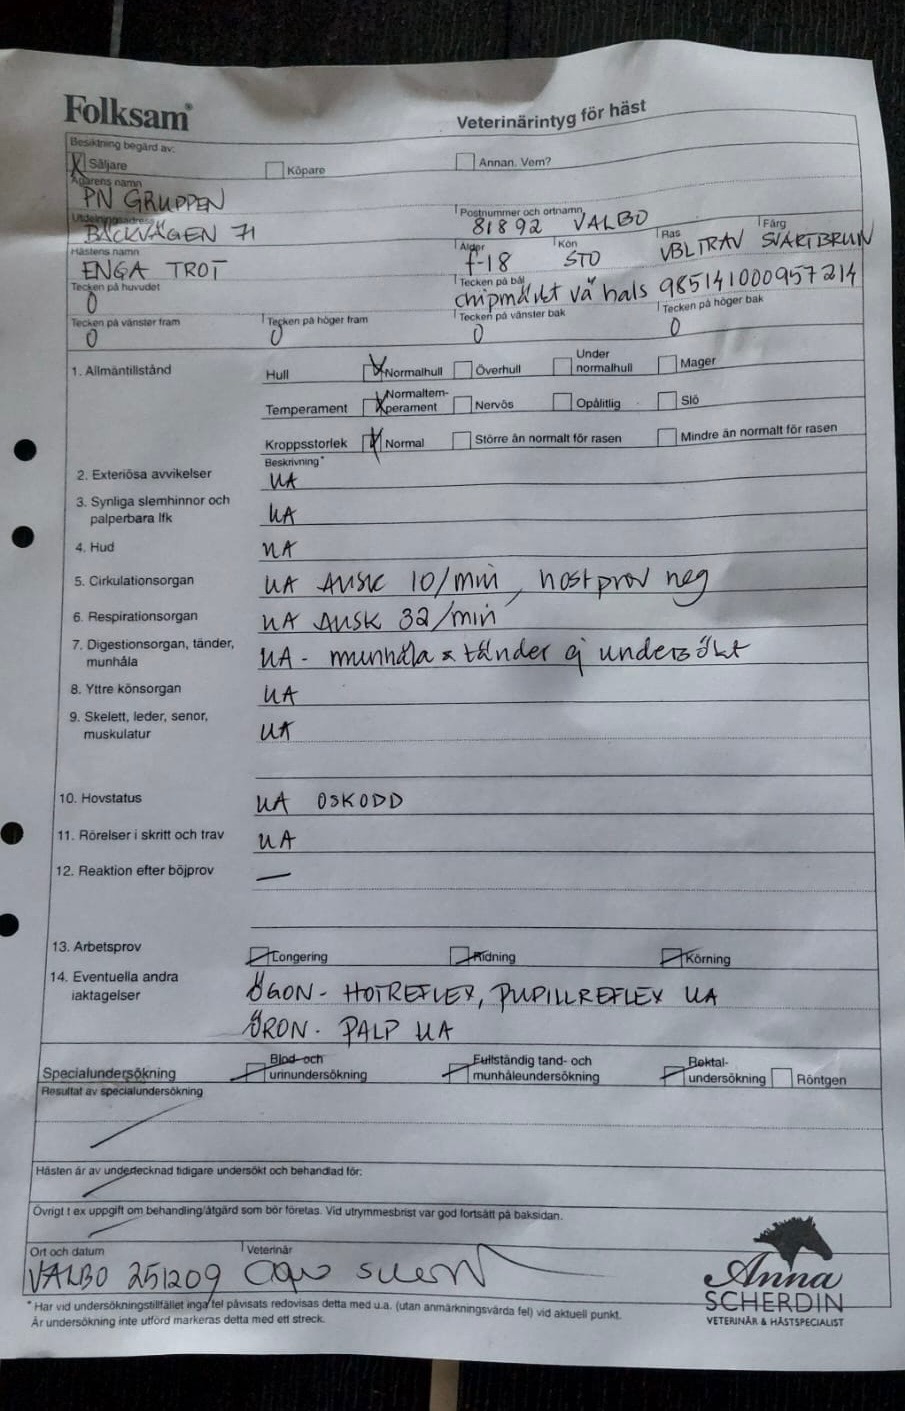 Folksam®
Veterinärintyg för häst
Besiktning begärd av:
X Säljare Köpare Annan. Vem?
Ägarens namn
PN GRUPPEN
Utdelningsadress Postnummer och ortnamn
BÄCKVÄGEN 71 81892 VALBO
Hästens namn Ålder Kön Ras Färg
ENGA TROT f-18 STO VBLTRAV SVARTBRUN
Tecken på huvudet Tecken på bål
0 chipmärkt vä hals 985141000957214
Tecken på vänster fram Tecken på höger fram Tecken på vänster bak Tecken på höger bak
0 0 0 0
1. Allmäntillstånd Hull X Normalhull Överhull Under normalhull Mager
Temperament X Normaltem-perament Nervös Opålitlig Slö
Kroppsstorlek X Normal Större än normalt för rasen Mindre än normalt för rasen
Beskrivning*
2. Exteriösa avvikelser UA
3. Synliga slemhinnor och
palperbara lfk UA
4. Hud UA
5. Cirkulationsorgan UA AUSK 10/min, hostprov neg
6. Respirationsorgan UA AUSK 32/min
7. Digestionsorgan, tänder,
munhåla UA - munhåla & tänder ej undersökt
8. Yttre könsorgan UA
9. Skelett, leder, senor,
muskulatur UA
10. Hovstatus UA OSKODD
11. Rörelser i skritt och trav UA
12. Reaktion efter böjprov —
13. Arbetsprov Longering Ridning Körning
14. Eventuella andra
iaktagelser ÖGON - HOTREFLEX, PUPILLREFLEX UA
ÖRON - PALP UA
Specialundersökning Blod- och urinundersökning Fullständig tand- och munhåleundersökning Rektal-undersökning Röntgen
Resultat av specialundersökning
Hästen är av undertecknad tidigare undersökt och behandlad för:
Övrigt t ex uppgift om behandling/åtgärd som bör företas. Vid utrymmesbrist var god fortsätt på baksidan.
Ort och datum Veterinär
VALBO 251209
* Har vid undersökningstillfället inga fel påvisats redovisas detta med u.a. (utan anmärkningsvärda fel) vid aktuell punkt.
Är undersökning inte utförd markeras detta med ett streck.
Anna
SCHERDIN
VETERINÄR & HÄSTSPECIALIST